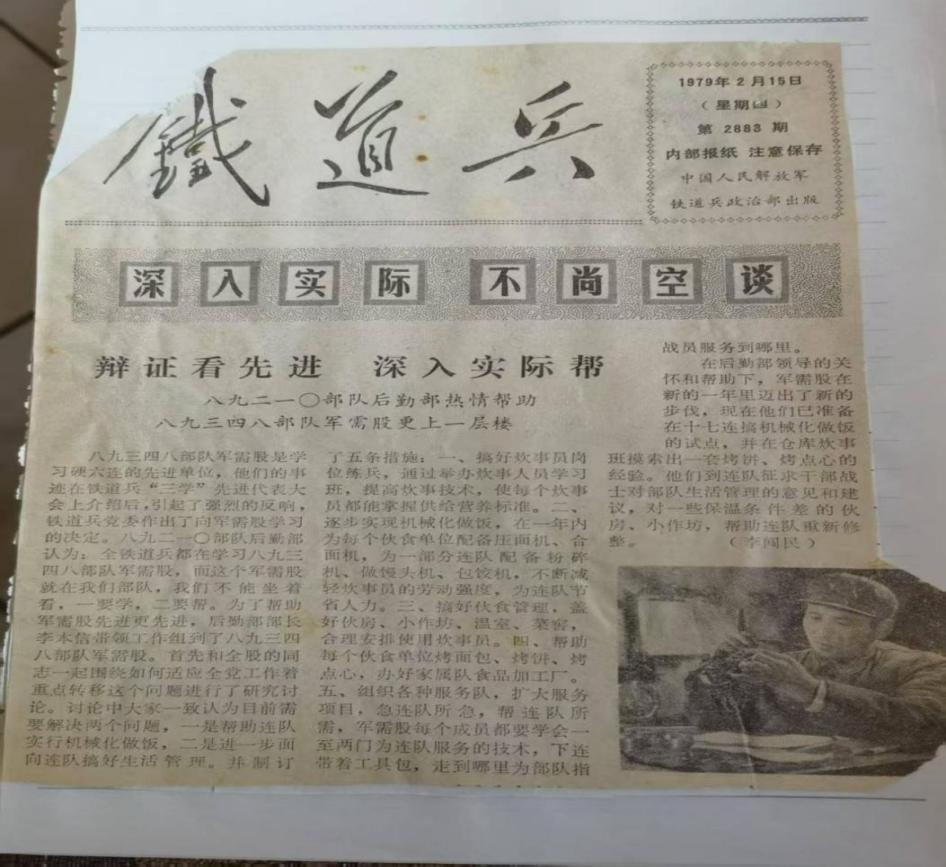 鐵道兵
1979年2月15日
（星期四）
第 2883 期
内部报纸 注意保存
中国人民解放军
铁道兵政治部出版
深入实际 不尚空谈
辩证看先进 深入实际帮
八九二一〇部队后勤部热情帮助
八九三四八部队军需股更上一层楼
八九三四八部队军需股是学
习硬六连的先进单位，他们的事
迹在铁道兵“三学”先进代表大
会上介绍后，引起了强烈的反响，
铁道兵党委作出了向军需股学习
的决定。八九二一〇部队后勤部
认为：全铁道兵都在学习八九三
四八部队军需股，而这个军需股
就在我们部队，我们不能坐着
看，一要学，二要帮。为了帮助
军需股先进更先进，后勤部部长
李本信带领工作组到了八九三四
八部队军需股。首先和全股的同
志一起围绕如何适应全党工作着
重点转移这个问题进行了研究讨
论。讨论中大家一致认为目前需
要解决两个问题，一是帮助连队
实行机械化做饭，二是进一步面
向连队搞好生活管理。并制订
了五条措施：一、搞好炊事员岗
位练兵，通过举办炊事人员学习
班，提高炊事技术，使每个炊事
员都能掌握供给营养标准。二、
逐步实现机械化做饭，在一年内
为每个伙食单位配备压面机、合
面机，为一部分连队配备粉碎
机、做馒头机、包饺机，不断减
轻炊事员的劳动强度，为连队节
省人力。三、搞好伙食管理，盖
好伙房、小作坊、温室、菜窖，
合理安排使用炊事员。四、帮助
每个伙食单位烤面包、烤饼、烤
点心，办好家属队食品加工厂。
五、组织各种服务队，扩大服务
项目，急连队所急，帮连队所
需，军需股每个成员都要学会一
至两门为连队服务的技术，下连
带着工具包，走到哪里为部队指
战员服务到哪里。
在后勤部领导的关
怀和帮助下，军需股在
新的一年里迈出了新的
步伐，现在他们已准备
在十七连搞机械化做饭
的试点，并在仓库炊事
班摸索出一套烤饼、烤点心的
经验。他们到连队征求干部战
士对部队生活管理的意见和建
议，对一些保温条件差的伙
房、小作坊，帮助连队重新修
整。 （李闯民）